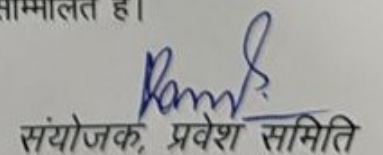 सम्मिलित है।
संयोजक, प्रवेश समिति